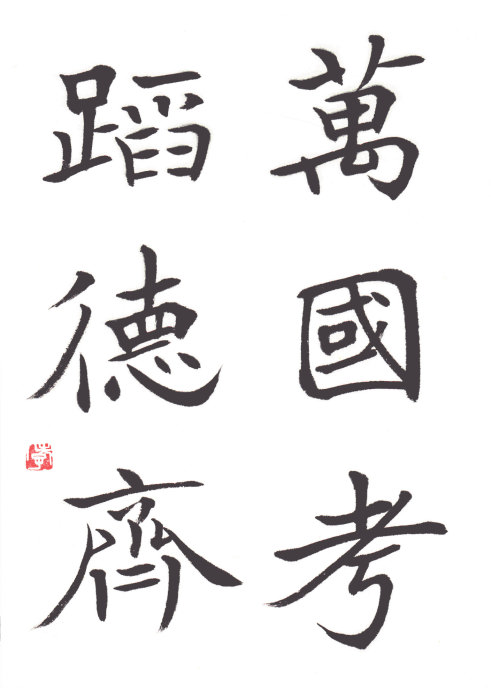 萬國考
蹈德齊